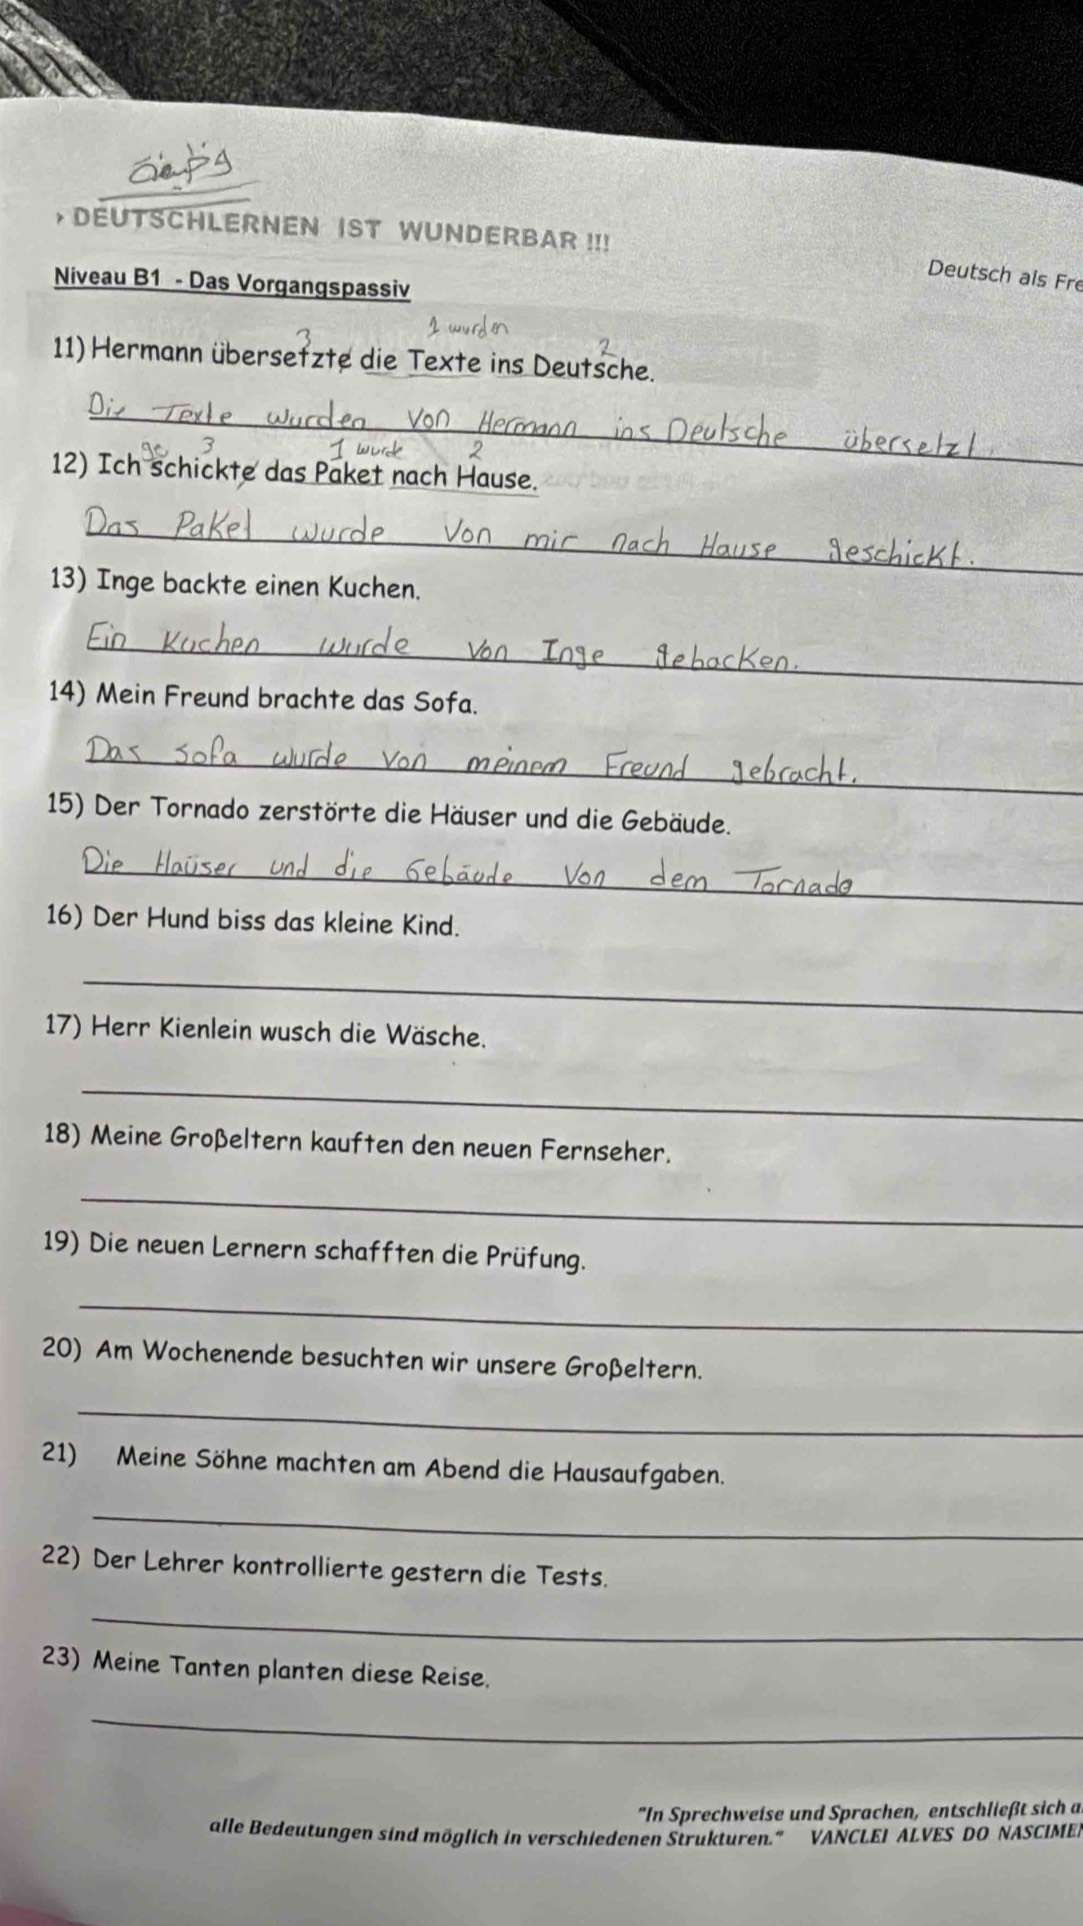 وظيفة
DEUTSCHLERNEN IST WUNDERBAR !!!
Deutsch als Fre
Niveau B1 - Das Vorgangspassiv
3 1 wurden 2
11) Hermann übersetzte die Texte ins Deutsche.
Die Texte wurden von Hermann ins Deutsche übersetzt.
ge 3 1 wurde 2
12) Ich schickte das Paket nach Hause.
Das Paket wurde von mir nach Hause geschickt.
13) Inge backte einen Kuchen.
Ein Kuchen wurde von Inge gebacken.
14) Mein Freund brachte das Sofa.
Das Sofa wurde von meinem Freund gebracht.
15) Der Tornado zerstörte die Häuser und die Gebäude.
Die Haüser und die Gebäude von dem Tornado
16) Der Hund biss das kleine Kind.
17) Herr Kienlein wusch die Wäsche.
18) Meine Großeltern kauften den neuen Fernseher.
19) Die neuen Lernern schafften die Prüfung.
20) Am Wochenende besuchten wir unsere Großeltern.
21) Meine Söhne machten am Abend die Hausaufgaben.
22) Der Lehrer kontrollierte gestern die Tests.
23) Meine Tanten planten diese Reise.
"In Sprechweise und Sprachen, entschließt sich a
alle Bedeutungen sind möglich in verschiedenen Strukturen." VANCLEI ALVES DO NASCIMEN